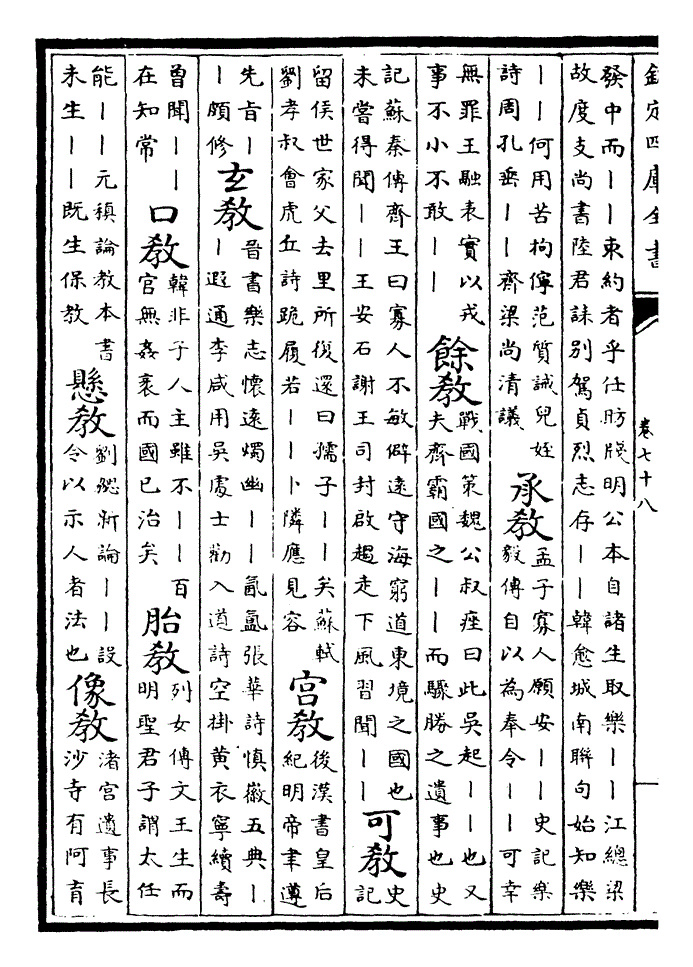 欽定四庫全書
卷七十八
發中而丨丨束約者乎任昉牋明公本自諸生取樂丨丨江總梁
故度支尚書陸君誄別駕貞烈志存丨丨韓愈城南聯句始知樂
丨丨何用苦拘儜范質誡兒姪
詩周孔垂丨丨齊梁尚清議
承教
孟子寡人願安丨丨史記樂
毅傳自以為奉令丨丨可幸
無罪王融表實以戎
事不小不敢丨丨
餘教
戰國策魏公叔痤曰此吳起丨丨也又
夫齊霸國之丨丨而驟勝之遺事也史
記蘇秦傳齊王曰寡人不敏僻遠守海窮道東境之國也
未嘗得聞丨丨王安石謝王司封啟趨走下風習聞丨丨
可教
史
記
留侯世家父去里所復還曰孺子丨丨矣蘇軾
劉孝叔會虎丘詩跪履若丨丨卜隣應見容
宮教
後漢書皇后
紀明帝聿遵
先旨丨
丨頗修
玄教
晉書樂志懷遠燭幽丨丨氤氳張華詩慎徽五典丨
丨遐通李咸用吳處士勸入道詩空掛黃衣寧續壽
曽聞丨丨
在知常
口教
韓非子人主雖不丨丨百
官無姦衺而國已治矣
胎教
列女傳文王生而
明聖君子謂太任
能丨丨元稹論教本書
未生丨丨既生保教
懸教
劉勰新論丨丨設
令以示人者法也
像教
渚宮遺事長
沙寺有阿育